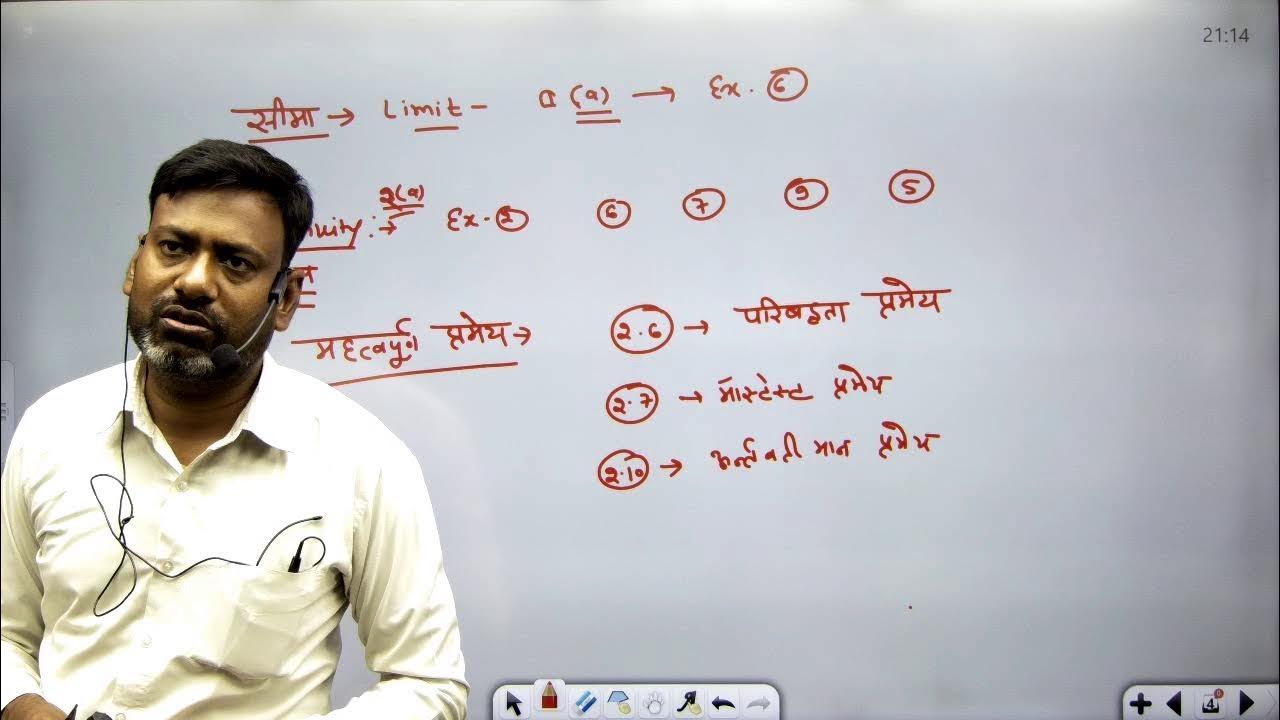 21:14
सीमा → Limit - (a) → Ex. 6
२(a)
nuity :→ Ex. 2 6 7 9 5
महत्वपूर्ण प्रमेय → २.6 → परिबद्धता प्रमेय
२.7 → मॉस्टेस्ट प्रमेय
२.10 → मान प्रमेय
4